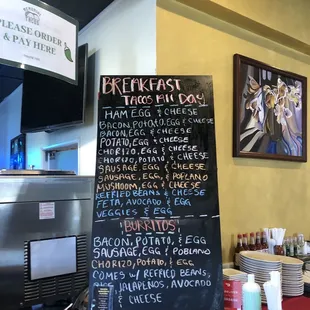 PLEASE ORDER
& PAY HERE
BREAKFAST
TACOS All DAY
HAM EGG & CHEESE
BACON, POTATO, EGG & CHEESE
BACON, EGG & CHEESE
POTATO, EGG & CHEESE
CHORIZO, EGG & CHEESE
CHORIZO, POTATO & CHEESE
SAUSAGE EGG & CHEESE
SAUSAGE, EGG & POBLANO
MUSHROOM, EGG & CHEESE
REFRIED BEANS & CHEESE
FETA, AVOCADO & EGG
VEGGIES & EGG
"BURRITOS"
BACON, POTATO, & EGG
SAUSAGE, EGG & POBLANO
CHORIZO, POTATO & EGG
COMES W/ REFRIED BEANS,
RICE, JALAPEÑOS, AVOCADO
& CHEESE